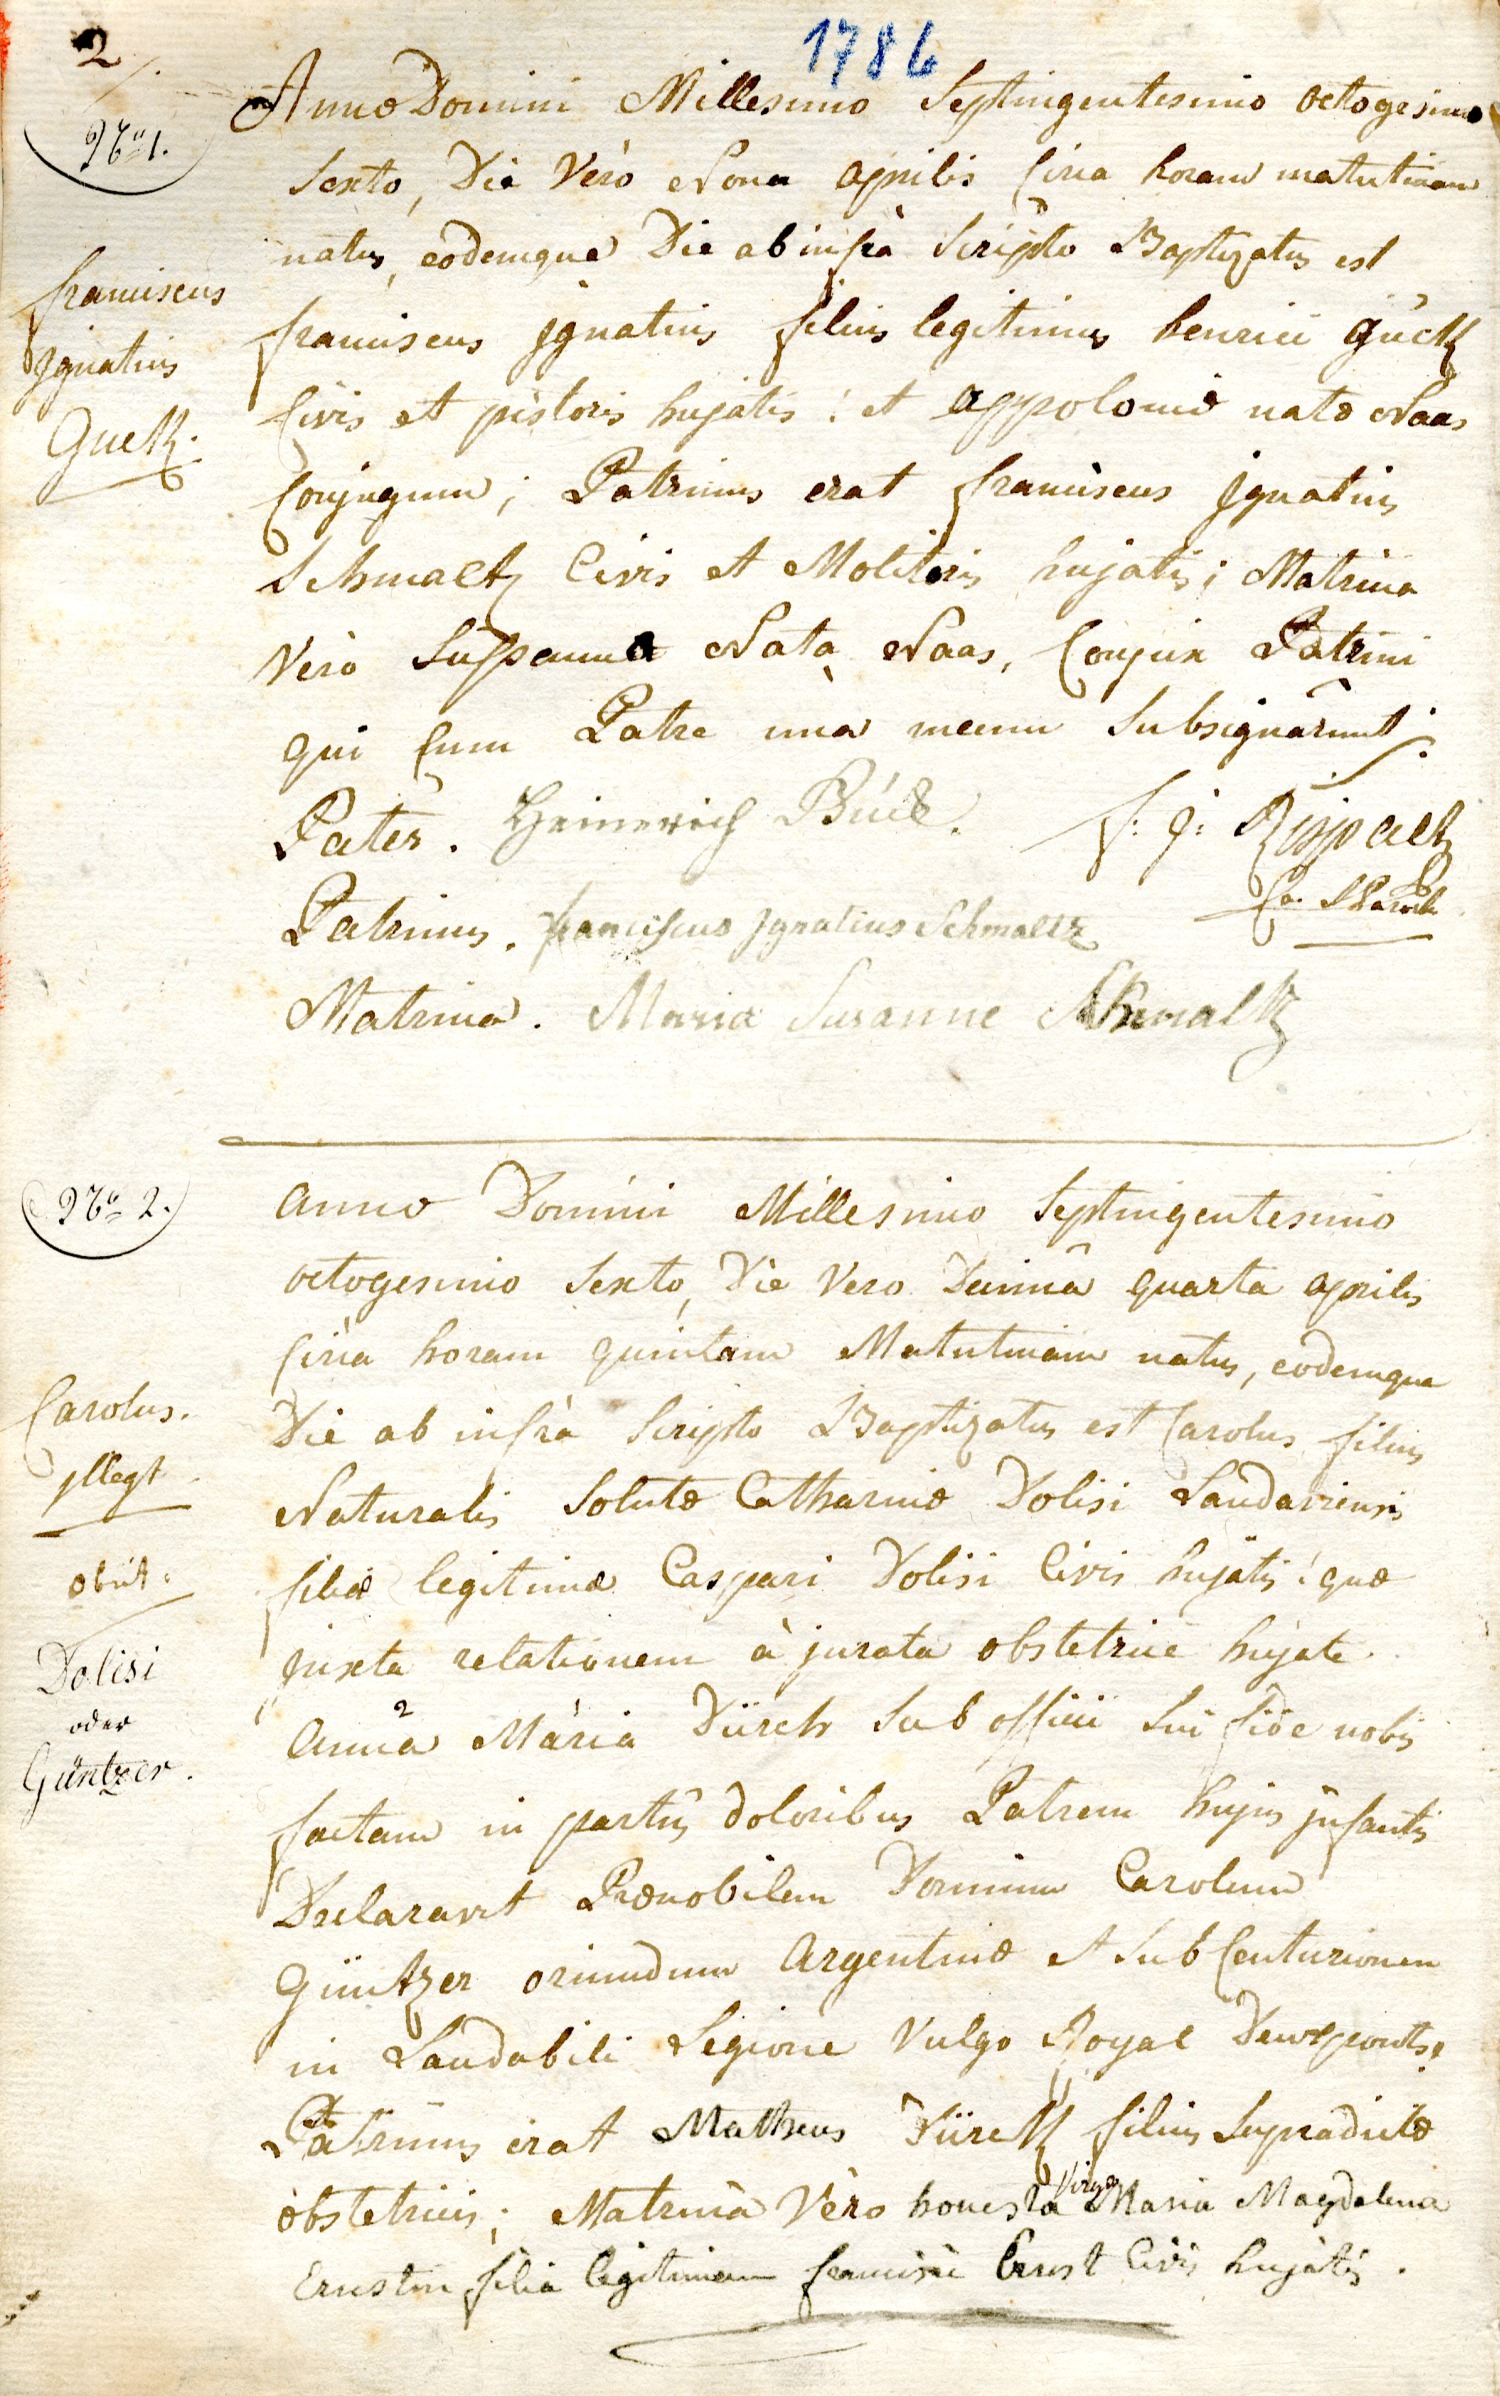 2
1786
Nro 1.
Anno Domini Millesimo Septingentesimo octogesimo
Sexto, Die Verò Nona aprilis Circa horam matutinam
natus, eodemque Die ab infrà Scripto Baptizatus est
franciscus
Ignatius
Guck.
franciscus Ignatius filius legitimus henrici Gück
Civis et pistoris hujatis: et appoloniæ natæ Naas
Conjugum; Patrinus erat franciscus Ignatius
Schmaltz Civis et Molitoris hujatis; Matrina
Verò Susanna Nata Naas, Conjux Patrini
qui Cum Patre unà mecum Subsignârunt.
Pater. Heinrich Gück. f: J:
Patrinus. franciscus Ignatius Schmaltz
Matrina. Maria Susanne Schmaltz
Nro 2.
Anno Domini Millesimo Septingentesimo
octogesimo Sexto, Die Vero Decimâ quarta aprilis
Circa horam quintam Matutinam natus, eodemque
Carolus.
illegt.
obiit.
Dolisi
oder
Güntzer.
Die ab infrà Scripto Baptizatus est Carolus filius
Naturalis Solutæ Catharinæ Dolisi Landaviensis
filiæ legitimæ Caspari Dolisi Civis hujatis: quæ
juxta relationem à jurata obstetrice hujate
Annâ Mariâ Dürck Sub officii Sui fide nobis
factam in partûs doloribus Patrem hujus infantis
Declaravit Prænobilem Dominum Carolum
Güntzer oriundum Argentinæ et Sub Centurionem
in Laudabili Legione Vulgo Royal Deuxponts.
Patrinus erat Matheus Dürck filius Supradictæ
obstetricis; Matrina Vèro honesta Virgo Maria Magdalena
Ernstin filia legitima francisci Ernst Civis hujatis.